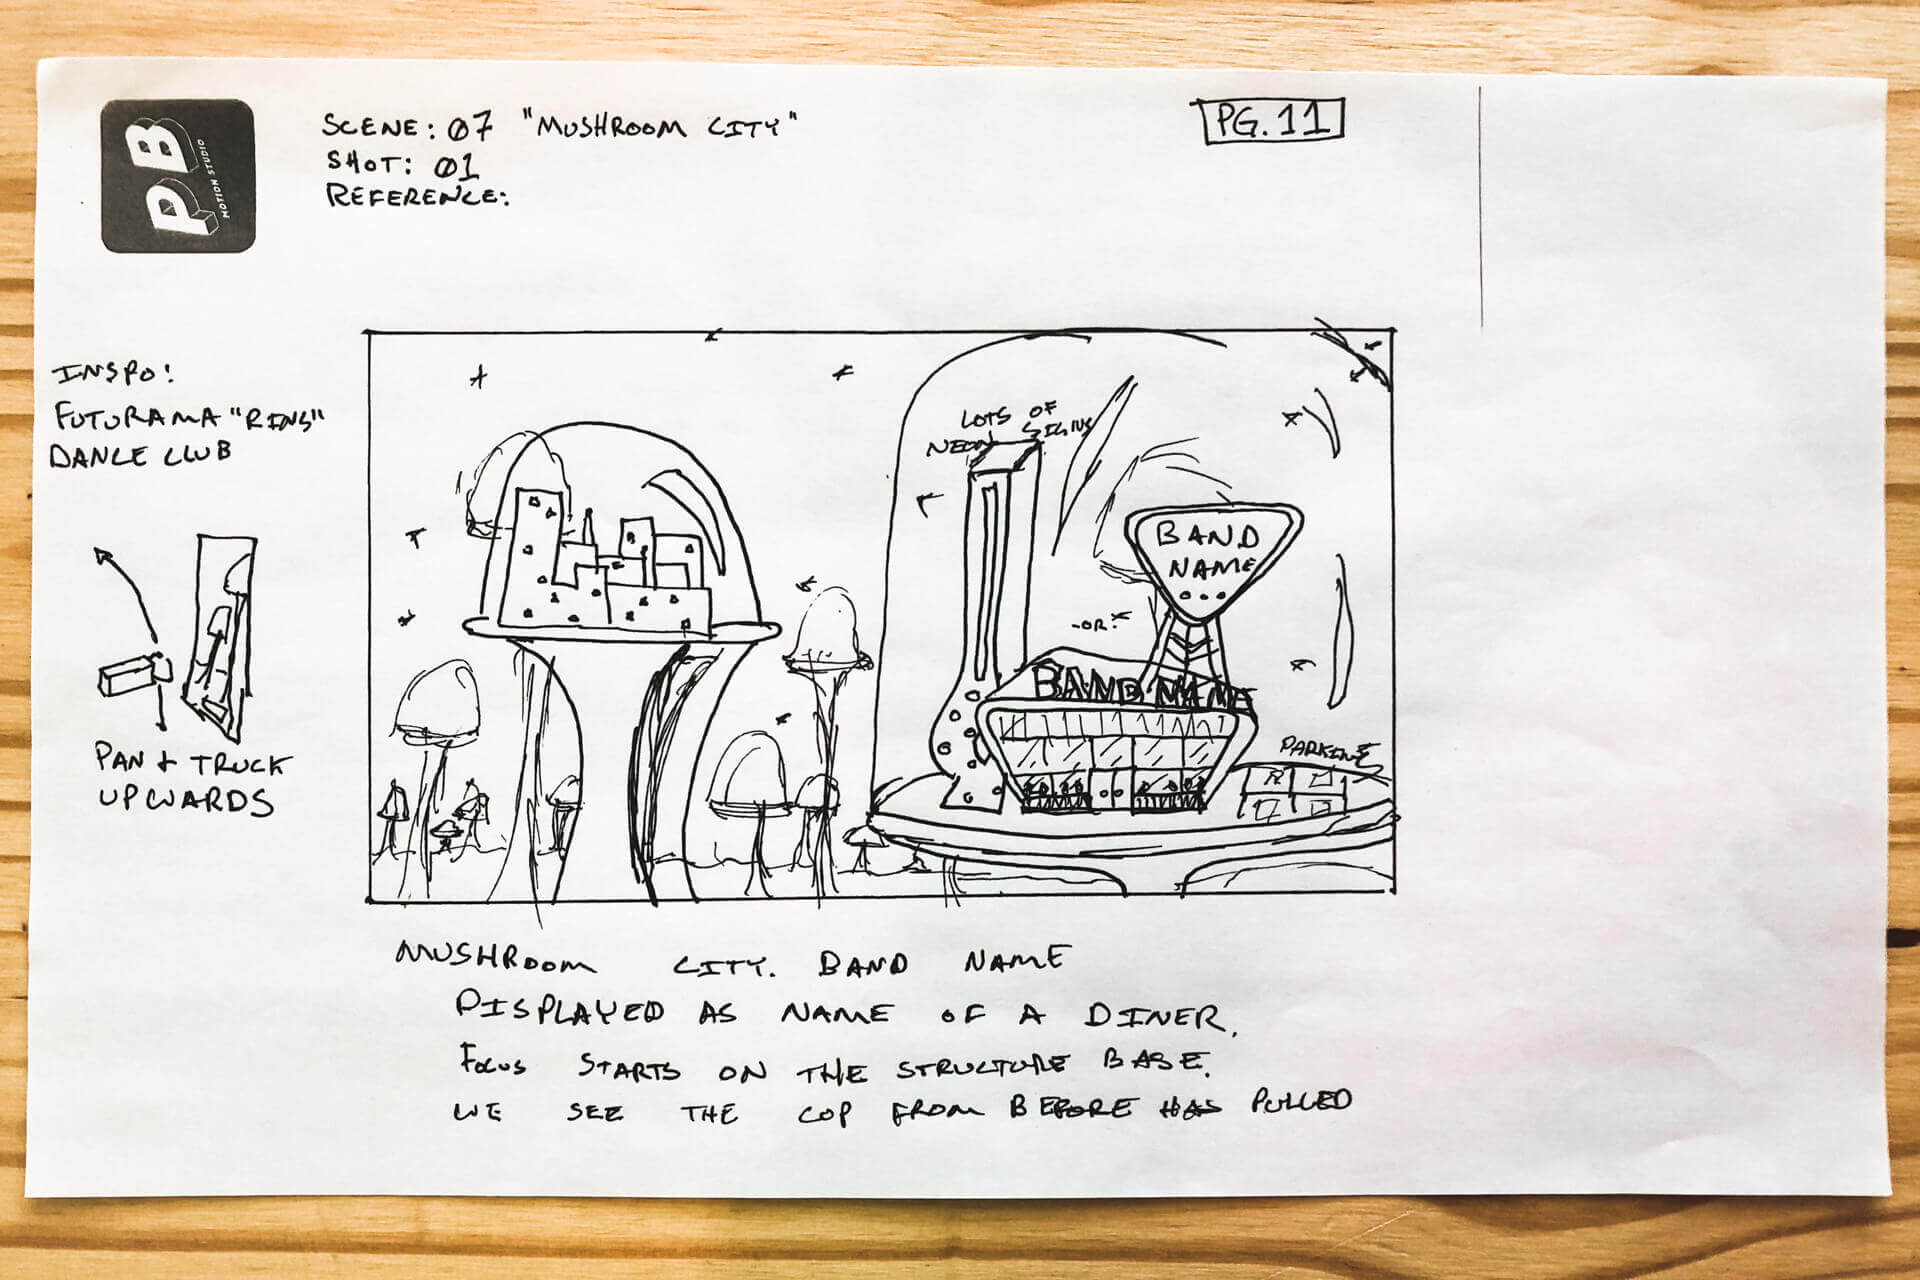 PB
MOTION STUDIO
SCENE: 07 "MUSHROOM CITY"
SHOT: 01
REFERENCE:
PG. 11
INSPO:
FUTURAMA "RINGS"
DANCE CLUB
PAN + TRUCK
UPWARDS
LOTS OF
NEON SIGNS
BAND
NAME
-OR-
BAND NAME
PARKING
MUSHROOM CITY. BAND NAME
DISPLAYED AS NAME OF A DINER.
FOCUS STARTS ON THE STRUCTURE BASE.
WE SEE THE COP FROM BEFORE HAS PULLED